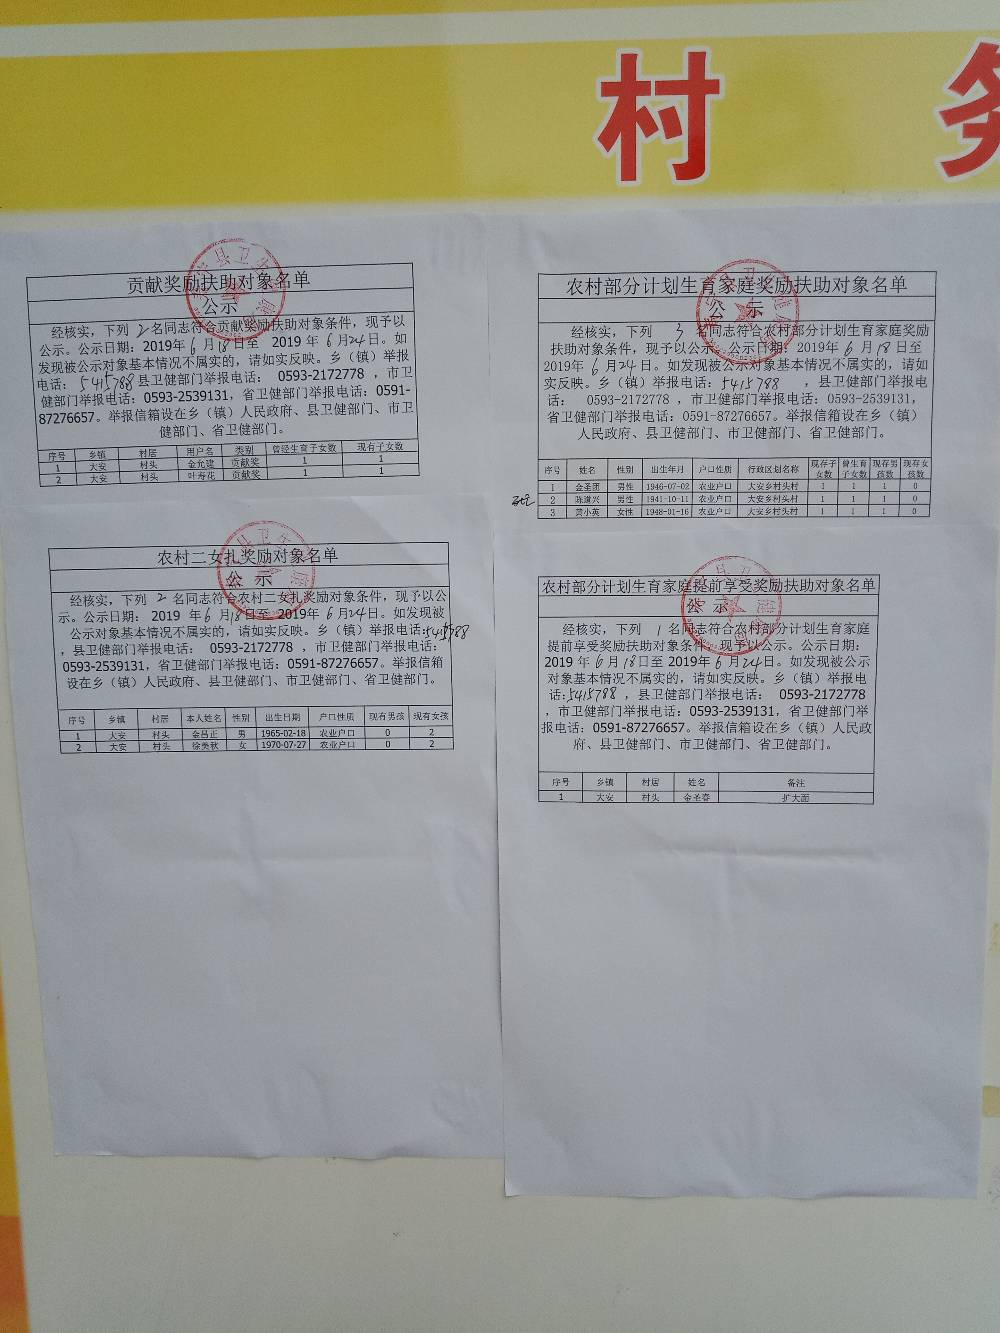 村 务
贡献奖励扶助对象名单
公示
经核实，下列 2 名同志符合贡献奖励扶助对象条件，现予以
公示。公示日期：2019年 6 月 18 日至 2019 年 6 月 24 日。如
发现被公示对象基本情况不属实的，请如实反映。乡（镇）举报
电话：5415788 县卫健部门举报电话： 0593-2172778 ，市卫
健部门举报电话：0593-2539131，省卫健部门举报电话：0591-
87276657。举报信箱设在乡（镇）人民政府、县卫健部门、市卫
健部门、省卫健部门。
序号 乡镇 村居 用户名 类别 曾经生育子女数 现有子女数
1 大安 村头 金允建 贡献奖 1 1
2 大安 村头 叶寿花 贡献奖 1 1
农村部分计划生育家庭奖励扶助对象名单
公 示
经核实，下列 3 名同志符合农村部分计划生育家庭奖励
扶助对象条件，现予以公示。公示日期：2019年 6 月 18 日至
2019年 6 月 24 日。如发现被公示对象基本情况不属实的，请如
实反映。乡（镇）举报电话：5415788 ，县卫健部门举报电
话： 0593-2172778 ，市卫健部门举报电话：0593-2539131，
省卫健部门举报电话：0591-87276657。举报信箱设在乡（镇）
人民政府、县卫健部门、市卫健部门、省卫健部门。
序号 姓名 性别 出生年月 户口性质 行政区划名称 现存子女数 曾生育子女数 现存男孩数 现存女孩数
1 金圣团 男性 1946-07-02 农业户口 大安乡村头村 1 1 1 0
2 陈道兴 男性 1941-10-11 农业户口 大安乡村头村 1 1 1 0
3 黄小英 女性 1948-01-16 农业户口 大安乡村头村 1 1 1 0
农村二女扎奖励对象名单
公 示
经核实，下列 2 名同志符合农村二女扎奖励对象条件，现予以公
示。公示日期： 2019 年 6 月 18 日至 2019年 6 月 24 日。如发现被
公示对象基本情况不属实的，请如实反映。乡（镇）举报电话：5415788
，县卫健部门举报电话： 0593-2172778 ，市卫健部门举报电话：
0593-2539131，省卫健部门举报电话：0591-87276657。举报信箱
设在乡（镇）人民政府、县卫健部门、市卫健部门、省卫健部门。
序号 乡镇 村居 本人姓名 性别 出生日期 户口性质 现有男孩 现有女孩
1 大安 村头 金吕正 男 1965-02-18 农业户口 0 2
2 大安 村头 徐美秋 女 1970-07-27 农业户口 0 2
农村部分计划生育家庭提前享受奖励扶助对象名单
公 示
经核实，下列 1 名同志符合农村部分计划生育家庭
提前享受奖励扶助对象条件，现予以公示。公示日期：
2019 年 6 月 18 日至 2019年 6 月 24 日。如发现被公示
对象基本情况不属实的，请如实反映。乡（镇）举报电
话：5415788 ，县卫健部门举报电话： 0593-2172778
，市卫健部门举报电话：0593-2539131，省卫健部门举
报电话：0591-87276657。举报信箱设在乡（镇）人民政
府、县卫健部门、市卫健部门、省卫健部门。
序号 乡镇 村居 姓名 备注
1 大安 村头 金圣春 扩大面